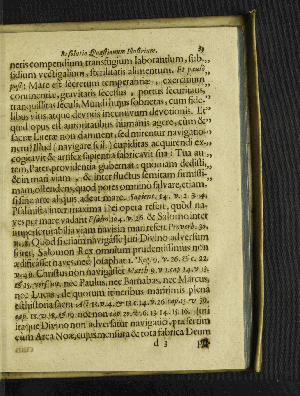 Resolutio Quæstionum illustrium. 39
neris compendium, transfugium laborantium, sub-
sidium vectigalium, sterilitatis alimentum. Et paulo
post: Mare est secretum temperantiæ, exercitium
continentiæ, gravitatis secessus, portus securitatis,
tranquillitas seculi, Mundi hujus sobrietas, cum fide-
libus viris atque devotis incentivum devotionis. Et
quid opus est autoritatibus humanis agere, cum &
sacræ Literæ non damnent, sed mirentur navigatio-
nem? Illud (navigare scil.) cupiditas acquirendi ex-
cogitavit & artifex sapientia fabricavit sua: Tua au-
tem, Pater, providentia gubernat: quoniam dedisti,
& in mari viam, & inter fluctus semitam firmissi-
mam, ostendens, quod potes ex omnibus salvare, etiam
si sine arte aliquis adeat mare. Sapient. 14. v. 2. 3. 4.
Psalmista inter maxima Dei opera refert, quod na-
ves per mare vadant Psalm. 104. v. 26. & Salomo inter
imperscrutabilia viam navis in mari refert. Proverb. 30.
Quod si etiam navigasse juri Divino adversum
fuisset, Salomon Rex omnium prudentissimus non
ædificasset naves nec Josaphat 1. Reg. 9. v. 26. & c. 22
v. 49. Christus non navigasset Matth. 9. v. 1. cap. 14. v. 13.
nec Paulus, nec Barnabas, nec Marcus,
nec Lucas, de quorum itineribus maritimis plena
est historia sacra.
itaque Divino non adversatur navigatio, præsertim
cum Arca Noæ, cujus mensura & tota fabrica Deum
d 3